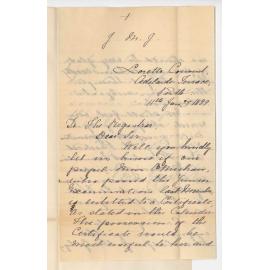 J. M. J.
Loretto Convent,
Adelaide Terrace,
Perth
11th Jany 1899
To The Registrar
Dear Sir
Will you kindly
let us know if our
pupil Miss
who passed the Junior
Examination last November
is entitled to a Certificate,
as stated in the Calendar
The possession of the
Certificate would be
most useful to her and